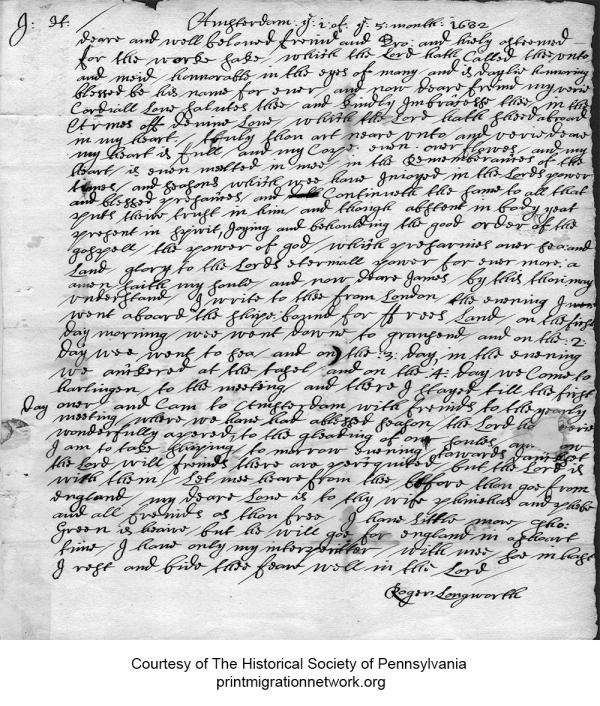 J: H: Amsterdam: y: 1 of: y: 5: month: 1682
deare and well beloved freind and Bro: and hiely esteemed
for the works sake, which the Lord hath Called thee unto
and meid honnorable in the eyes of many and is daylie honnoring
blessed be his name for ever and now deare freind my verie
Cordiall Love salutes thee and kindly Imbraceses thee in the
Armes off devine Love, which the Lord hath sheed abroad
in my heart, truly thou art neare unto and verie deare
my heart is full and my Cope even over flowes and my
heart is even melted in mee in the Remembrances of the
times, and seasons which wee have Injoyed in the Lords power
and blessed presaines, and Continueth the same to all that
puts their trust in him and though abstent in body yeat
present in spirit, Joying and behoulding the good order of the
gospell, the power of god, which presarvies over sea: and
Land glory to the Lords eternall power for ever more: a
amen saith my soule and now deare James, by this thou may
understand, I write to thee from London, the evening I
went aboard the shipe bound for ffrees Land, on the first
day morning wee went downe to gransend, and on the: 2:
day wee went to sea and on the: 3: day in the evening
we ankered at the and on the 4: day we Come to
harlingen, to the meeting and there I stayed till the first
day over, and Cam to Amsterdam with freinds to the yearly
meeting where we have had ablessed season, the Lord
wonderfully apered, to the gleading of our soules, and now
I am to take shiping to morrow evening towards
the Lord will freinds there are persequited but the Lord is
with them, Let mee heare from thee before thou goe from
england, my deare Love is to thy wife phinehas and phebe
and all freinds as thou free, I have little more, tho:
Green is heaire, but he will goe for england in ashoart
time, I have only my interpreter, with mee soe in hast
I rest and bide thee fear well in the Lord
Roger Longworth
Courtesy of The Historical Society of Pennsylvania
printmigrationnetwork.org